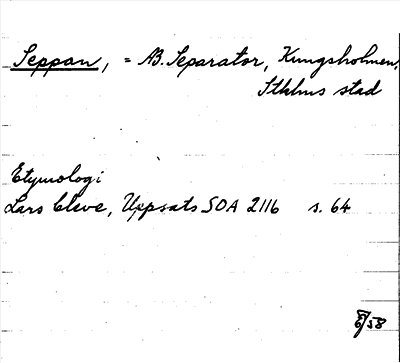 Seppan, = AB. Separator, Kungsholmen,
Sthlms stad
Etymologi
Lars Cleve, Uppsats SOA 2116 s. 64